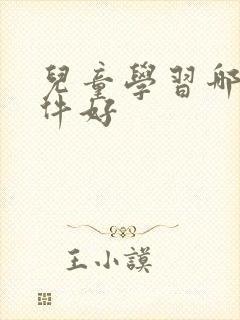 兒童學習郍
件好
王小謨